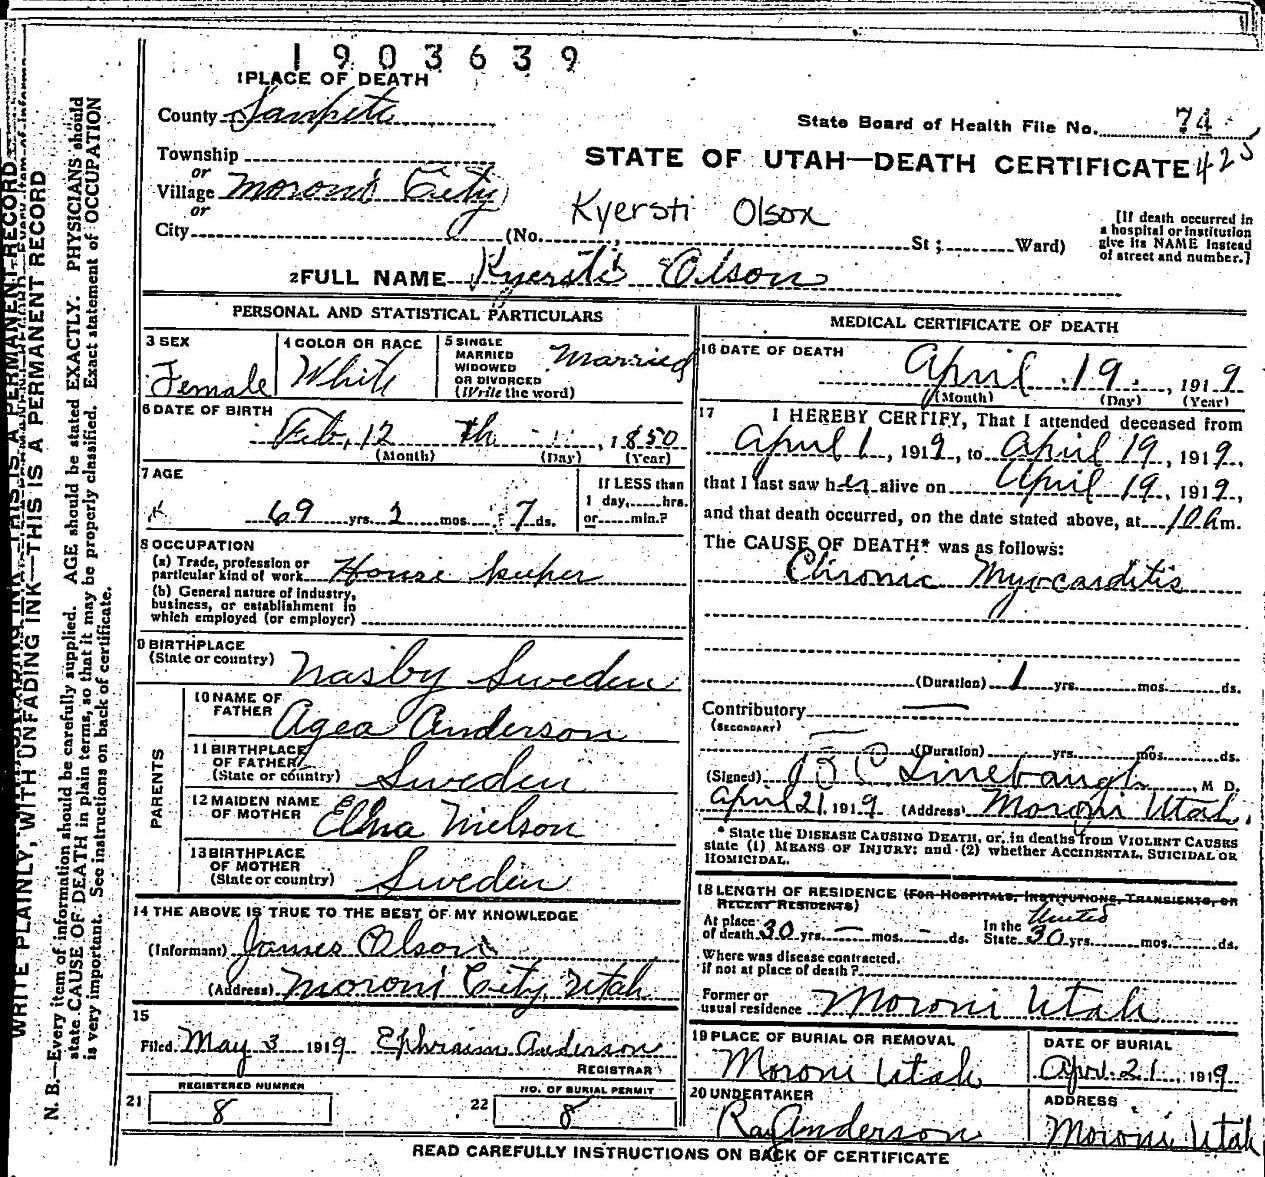 1903639
1 PLACE OF DEATH
County Sanpete
State Board of Health File No. 74
Township
or
Village Moroni City
or
City
STATE OF UTAH—DEATH CERTIFICATE 425
Kyersti Olson
(No. , St; Ward)
[If death occurred in
a hospital or institution
give its NAME instead
of street and number.]
2 FULL NAME Kyersti Olson
PERSONAL AND STATISTICAL PARTICULARS
3 SEX
Female
4 COLOR OR RACE
White
5 SINGLE
MARRIED
WIDOWED
OR DIVORCED
(Write the word)
Married
6 DATE OF BIRTH
Feb, 12 th , 1850
(Month) (Day) (Year)
7 AGE
69 yrs. 2 mos. 7 ds.
If LESS than
1 day, hrs.
or min.?
8 OCCUPATION
(a) Trade, profession or
particular kind of work House keeper
(b) General nature of industry,
business, or establishment in
which employed (or employer)
9 BIRTHPLACE
(State or country) Nasby Sweden
PARENTS
10 NAME OF
FATHER Agea Anderson
11 BIRTHPLACE
OF FATHER
(State or country) Sweden
12 MAIDEN NAME
OF MOTHER Elna Nielson
13 BIRTHPLACE
OF MOTHER
(State or country) Sweden
14 THE ABOVE IS TRUE TO THE BEST OF MY KNOWLEDGE
(Informant) James Olson
(Address) Moroni City, Utah
15
Filed May 3 1919 Ephraim Anderson
REGISTRAR
REGISTERED NUMBER
21 8
NO. OF BURIAL PERMIT
22 8
MEDICAL CERTIFICATE OF DEATH
16 DATE OF DEATH
April 19. , 1919
(Month) (Day) (Year)
17 I HEREBY CERTIFY, That I attended deceased from
April 1, 1919, to April 19, 1919,
that I last saw her alive on April 19, 1919,
and that death occurred, on the date stated above, at 10 a m.
The CAUSE OF DEATH* was as follows:
Chronic Myocarditis
(Duration) 1 yrs. mos. ds.
Contributory —
(SECONDARY)
(Duration) yrs. mos. ds.
(Signed) Linebaugh, M D.
April 21, 1919 (Address) Moroni Utah.
* State the DISEASE CAUSING DEATH, or, in deaths from VIOLENT CAUSES
state (1) MEANS OF INJURY; and (2) whether ACCIDENTAL, SUICIDAL OR
HOMICIDAL.
18 LENGTH OF RESIDENCE (FOR HOSPITALS, INSTITUTIONS, TRANSIENTS, OR
RECENT RESIDENTS)
At place
of death 30 yrs. — mos. - ds.
In the United
State 30 yrs. mos. ds.
Where was disease contracted,
if not at place of death?
Former or
usual residence Moroni Utah
19 PLACE OF BURIAL OR REMOVAL
Moroni Utah
DATE OF BURIAL
Apr. 21, 1919
20 UNDERTAKER
Ray Anderson
ADDRESS
Moroni Utah
READ CAREFULLY INSTRUCTIONS ON BACK OF CERTIFICATE
WRITE PLAINLY, WITH UNFADING INK—THIS IS A PERMANENT RECORD
N. B.—Every item of information should be carefully supplied. AGE should be stated EXACTLY. PHYSICIANS should
state CAUSE OF DEATH in plain terms, so that it may be properly classified. Exact statement of OCCUPATION
is very important. See instructions on back of certificate.